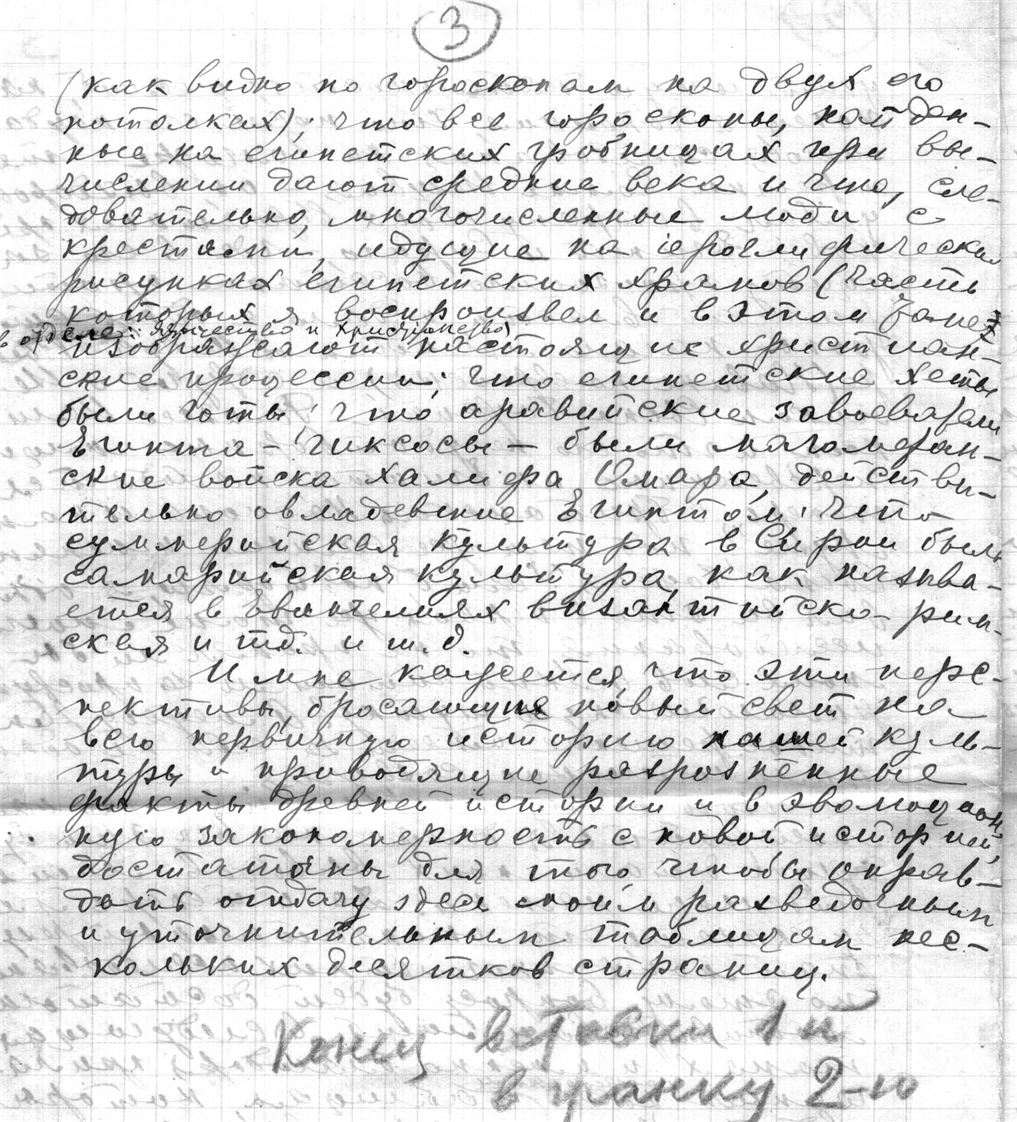 3
(как видно по гороскопам на двух его
потолках); что все гороскопы, найден-
ные на египетских гробницах при вы-
числении дают средние века и что, сле-
довательно, многочисленные люди с
крестами, идущие на іероглифических
рисунках египетских храмов (часть
которых я воспроизвел и в этом томе
в отделе: язычество и христианство)
изображают настоящие христиан-
ские процессии; что египетские хеты
были готы; что аравийские завоеватели
Египта – гиксосы – были магометан-
ские войска халифа Омара, действи-
тельно овладевшие Египтом; что
суммерийская культура в Сирии была
самарийская культура, как называ-
ется в Евангелиях византийско-рим-
ская и т.д. и т.д.
И мне кажется, что эти перс-
пективы, бросающие новый свет на
всю первичную историю нашей куль-
туры и приводящие разрозненные
факты древней истории и в эволюцион-
ную закономерность с новой историей,
достаточны для того чтобы оправ-
дать отдачу здесь моим разведочным
и уточнительным таблицам нес-
кольких десятков страниц.
Конец вставки 1-й
в гранку 2-ю